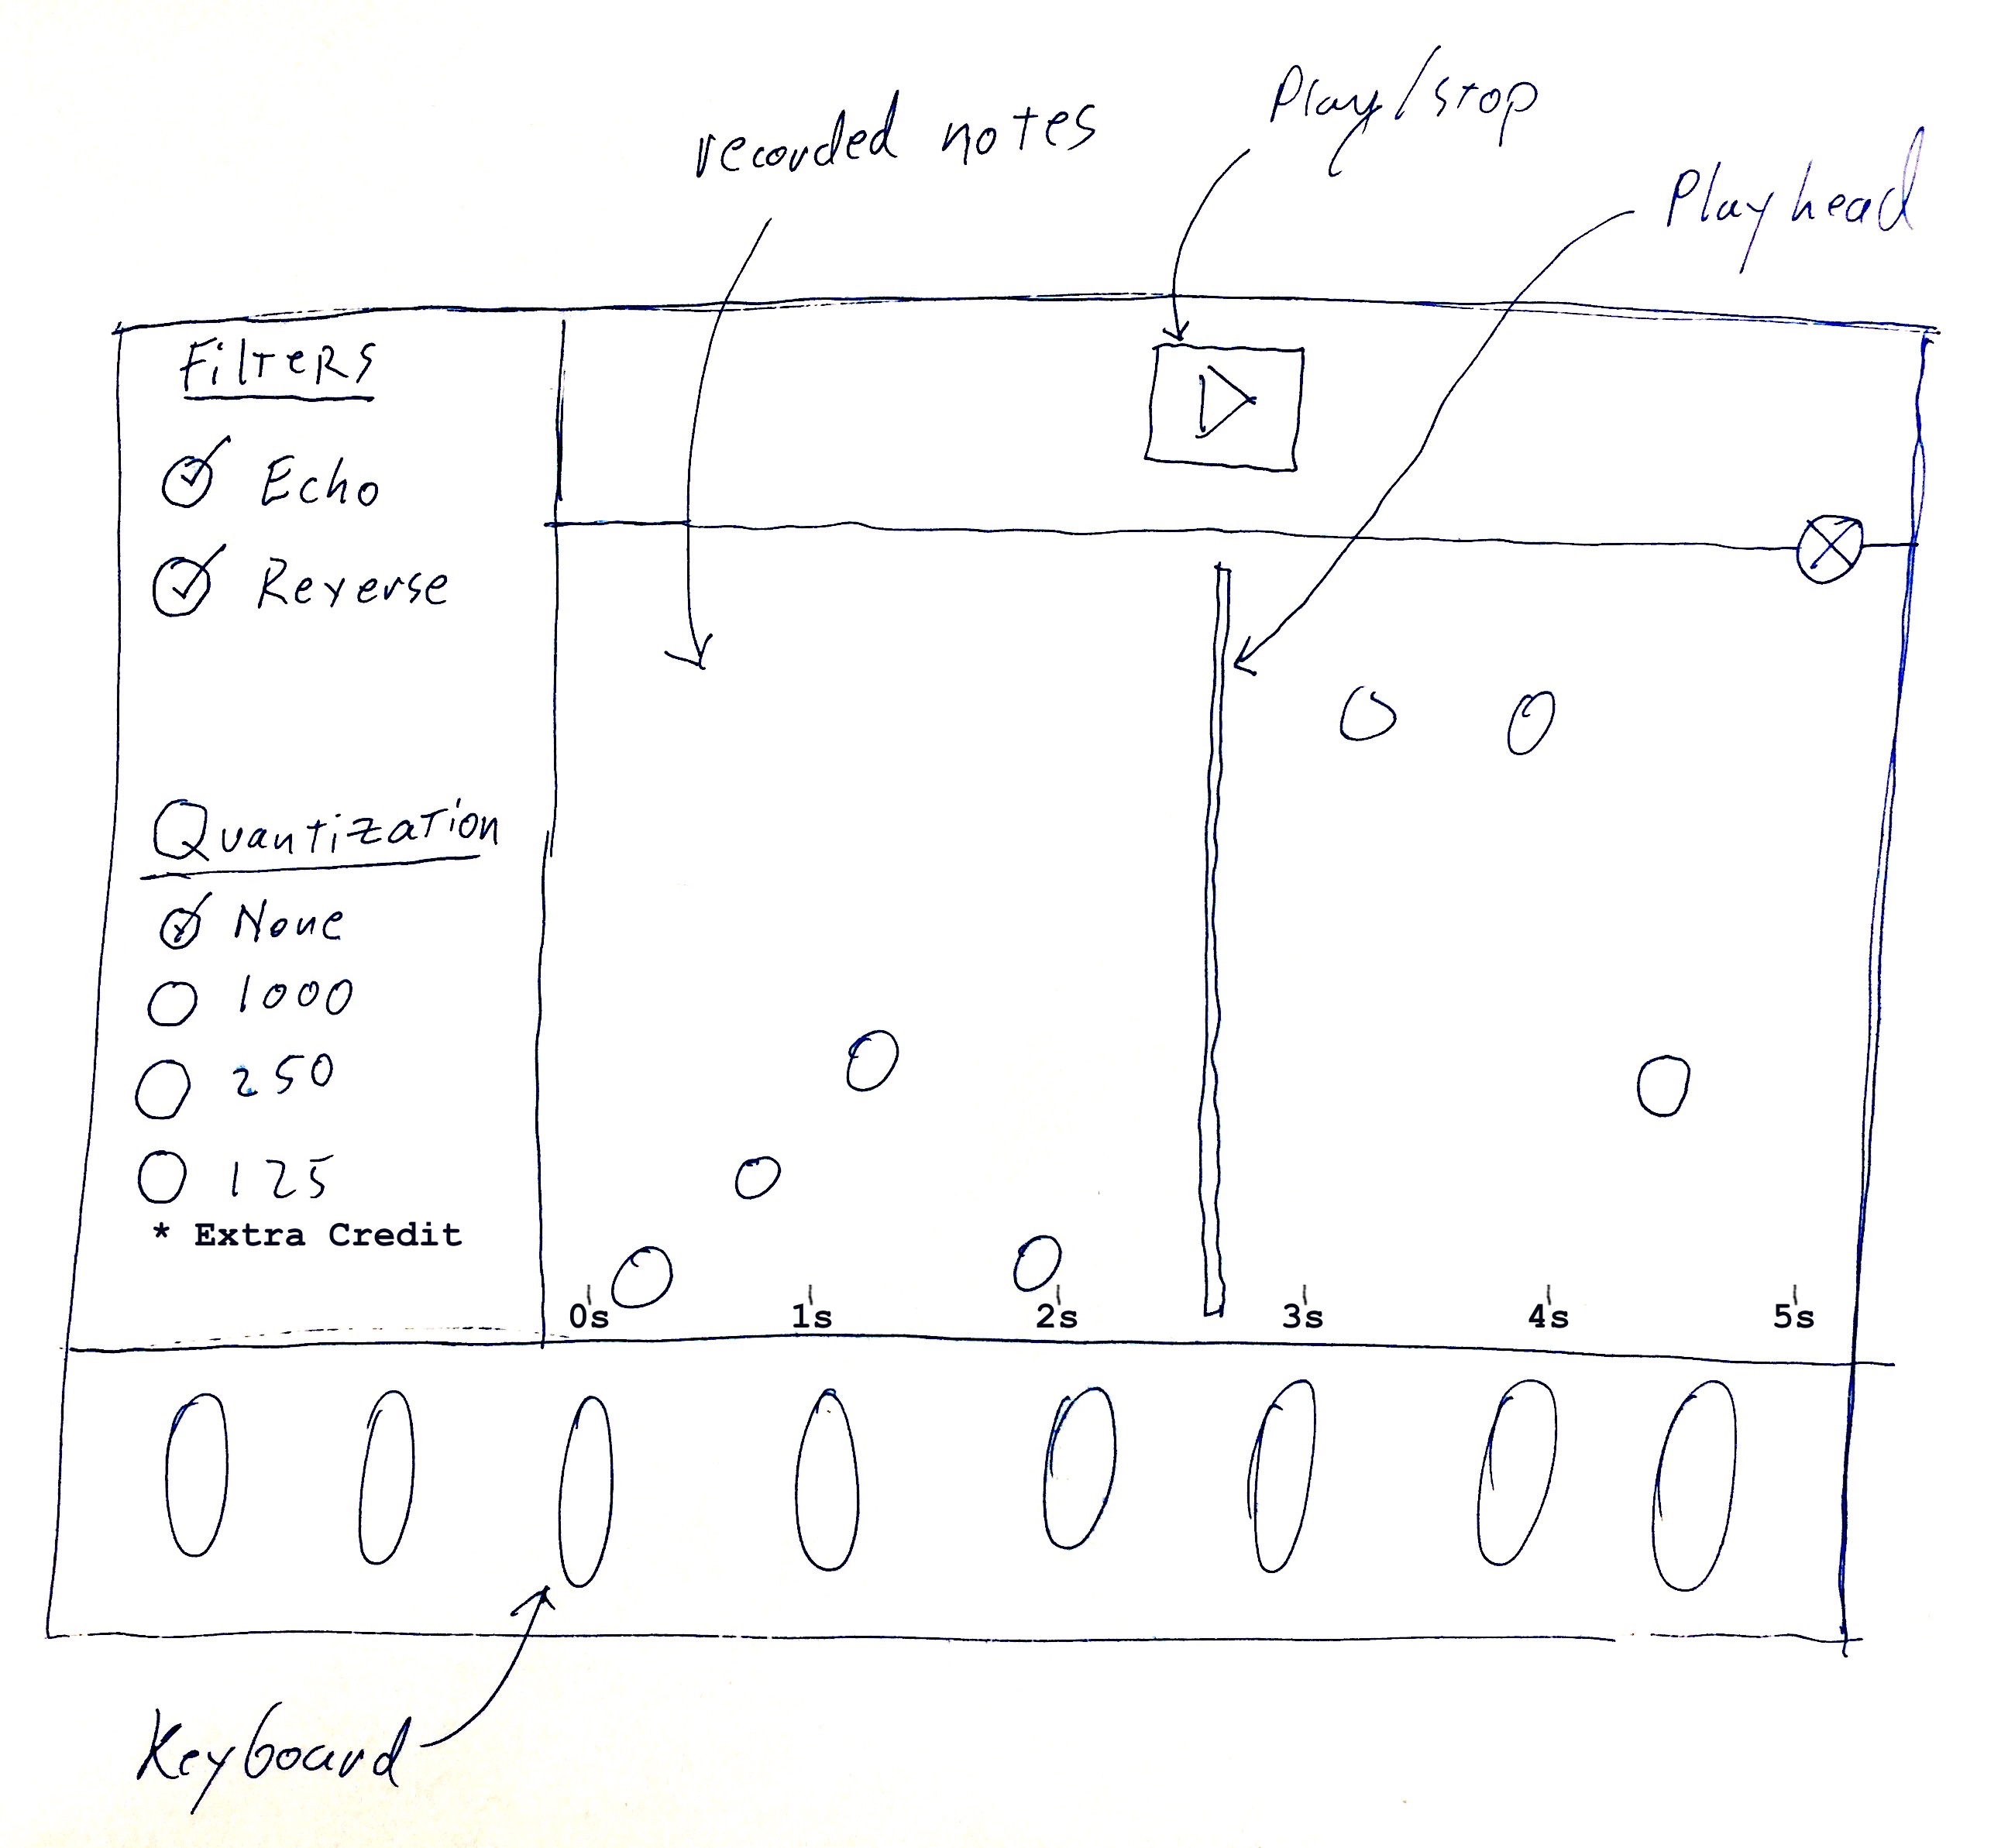 recorded notes
Play/stop
Playhead
Filters
Echo
Reverse
Quantization
None
1000
250
125
* Extra Credit
0s 1s 2s 3s 4s 5s
Keyboard